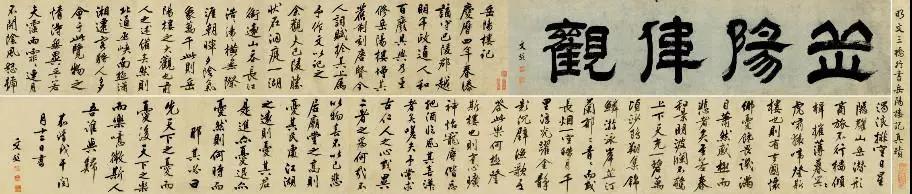 明文三橋行書岳陽樓記真蹟
岳陽偉觀
文彭
岳陽樓記
慶曆四年春滕
謫守巴陵郡越
明年政通人和
百廢具興乃重
修岳陽樓增其
舊制刻唐賢今
人詞賦於其上屬
予作文以記之
余觀夫巴陵勝
狀在洞庭一湖
銜遠山吞長江
浩浩湯湯橫無際
涯朝暉夕陰氣
象萬千此則岳
陽樓之大觀也前
人之述備矣然則
北通巫峽南極瀟
湘遷客騷人多
會于此覽物之
情得無異乎若
夫霪雨霏霏連月
不開陰風怒號
濁浪排空日星
隱耀山岳潛形
商旅不行檣傾
楫摧薄暮冥冥
虎嘯猿啼登斯
樓也則有去國懷
鄉憂讒畏譏滿
目蕭然感極而
悲者矣至若春
和景明波瀾不驚
上下天光一碧萬
頃沙鷗翔集錦
鱗游泳岸芷汀
蘭郁郁青青而或
長煙一空皓月千
里浮光躍金靜
影沉璧漁歌互
答此樂何極登
斯樓也則有心曠
神怡寵辱偕忘
把酒臨風其喜洋洋
者矣嗟夫予嘗求
古仁人之心或異
二者之為何哉不
以物喜不以己悲
居廟堂之高則
憂其民處江湖
之遠則憂其君
是進亦憂退亦
憂然則何時而樂
耶其必曰
先天下之憂而
憂後天下之樂
而樂歟噫微斯人
吾誰與歸
戊午閏
月十三日書
文彭